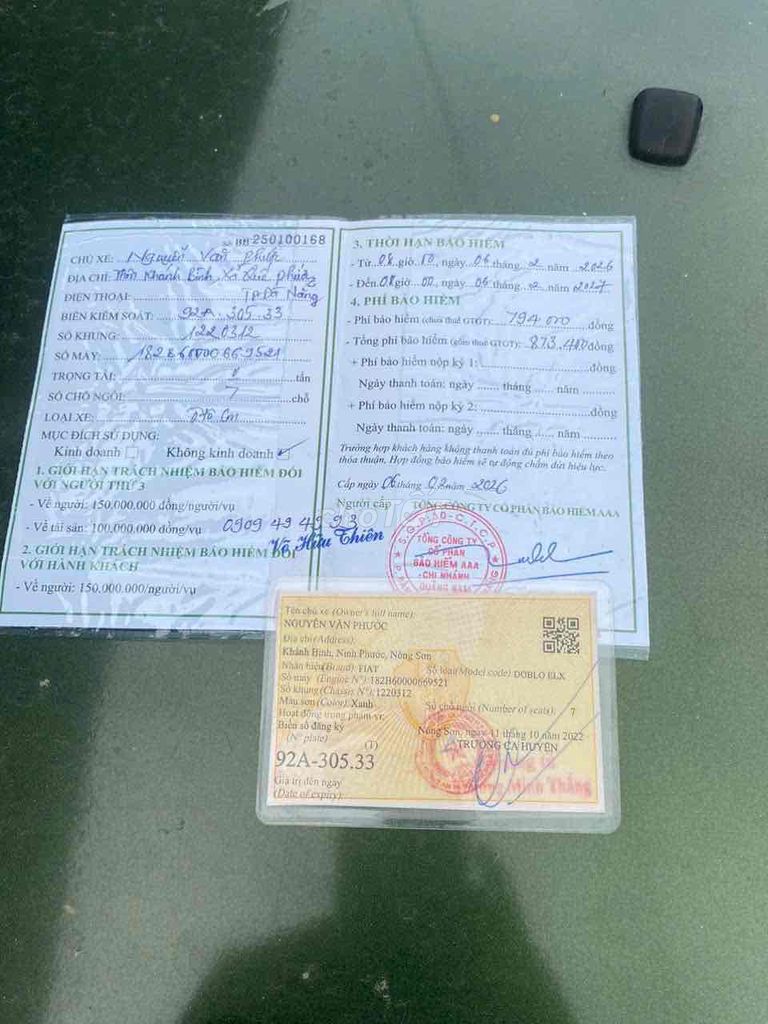 Số BH 250100168
CHỦ XE: Nguyễn Văn Phước
ĐỊA CHỈ: Thôn Khánh Bình, Xã Quế Phước
TP Đà Nẵng
ĐIỆN THOẠI:
BIỂN KIỂM SOÁT: 92A. 305.33
SỐ KHUNG: 1220312
SỐ MÁY: 182B60000669521
TRỌNG TẢI: 0 tấn
SỐ CHỖ NGỒI: 7 chỗ
LOẠI XE: Ôtô Con
MỤC ĐÍCH SỬ DỤNG:
Kinh doanh Không kinh doanh
1. GIỚI HẠN TRÁCH NHIỆM BẢO HIỂM ĐỐI
VỚI NGƯỜI THỨ 3
- Về người: 150.000.000 đồng/người/vụ
- Về tài sản: 100.000.000 đồng/vụ
0909 49 49 93
Võ Hữu Thiên
2. GIỚI HẠN TRÁCH NHIỆM BẢO HIỂM ĐỐI
VỚI HÀNH KHÁCH
- Về người: 150.000.000/người/vụ
3. THỜI HẠN BẢO HIỂM
- Từ 08 giờ 00, ngày 06 tháng 2 năm 2026
- Đến 08 giờ 00, ngày 06 tháng 02 năm 2027
4. PHÍ BẢO HIỂM
- Phí bảo hiểm (chưa thuế GTGT): 794 000 đồng
- Tổng phí bảo hiểm (gồm thuế GTGT): 873.400 đồng
+ Phí bảo hiểm nộp kỳ 1: đồng
Ngày thanh toán: ngày tháng năm
+ Phí bảo hiểm nộp kỳ 2: đồng
Ngày thanh toán: ngày tháng năm
Trường hợp khách hàng không thanh toán đủ phí bảo hiểm theo
thỏa thuận, Hợp đồng bảo hiểm sẽ tự động chấm dứt hiệu lực.
Cấp ngày 06 tháng 02 năm 2026
Người cấp TỔNG CÔNG TY CỔ PHẦN BẢO HIỂM AAA
TỔNG CÔNG TY
CỔ PHẦN
BẢO HIỂM AAA
- CHI NHÁNH
QUẢNG NAM
Tên chủ xe (Owner's full name):
NGUYỄN VĂN PHƯỚC
Địa chỉ (Address):
Khánh Bình, Ninh Phước, Nông Sơn
Nhãn hiệu (Brand): FIAT Số loại (Model code): DOBLO ELX
Số máy (Engine N°): 182B60000669521
Số khung (Chassis N°): 1220312
Màu sơn (Color): Xanh Số chỗ ngồi (Number of seats): 7
Hoạt động trong phạm vi:
Biển số đăng ký
(N° plate) (T)
92A-305.33
Nông Sơn, ngày 11 tháng 10 năm 2022
TRƯỞNG CA HUYỆN
Minh Thắng
Giá trị đến ngày
(Date of expiry):